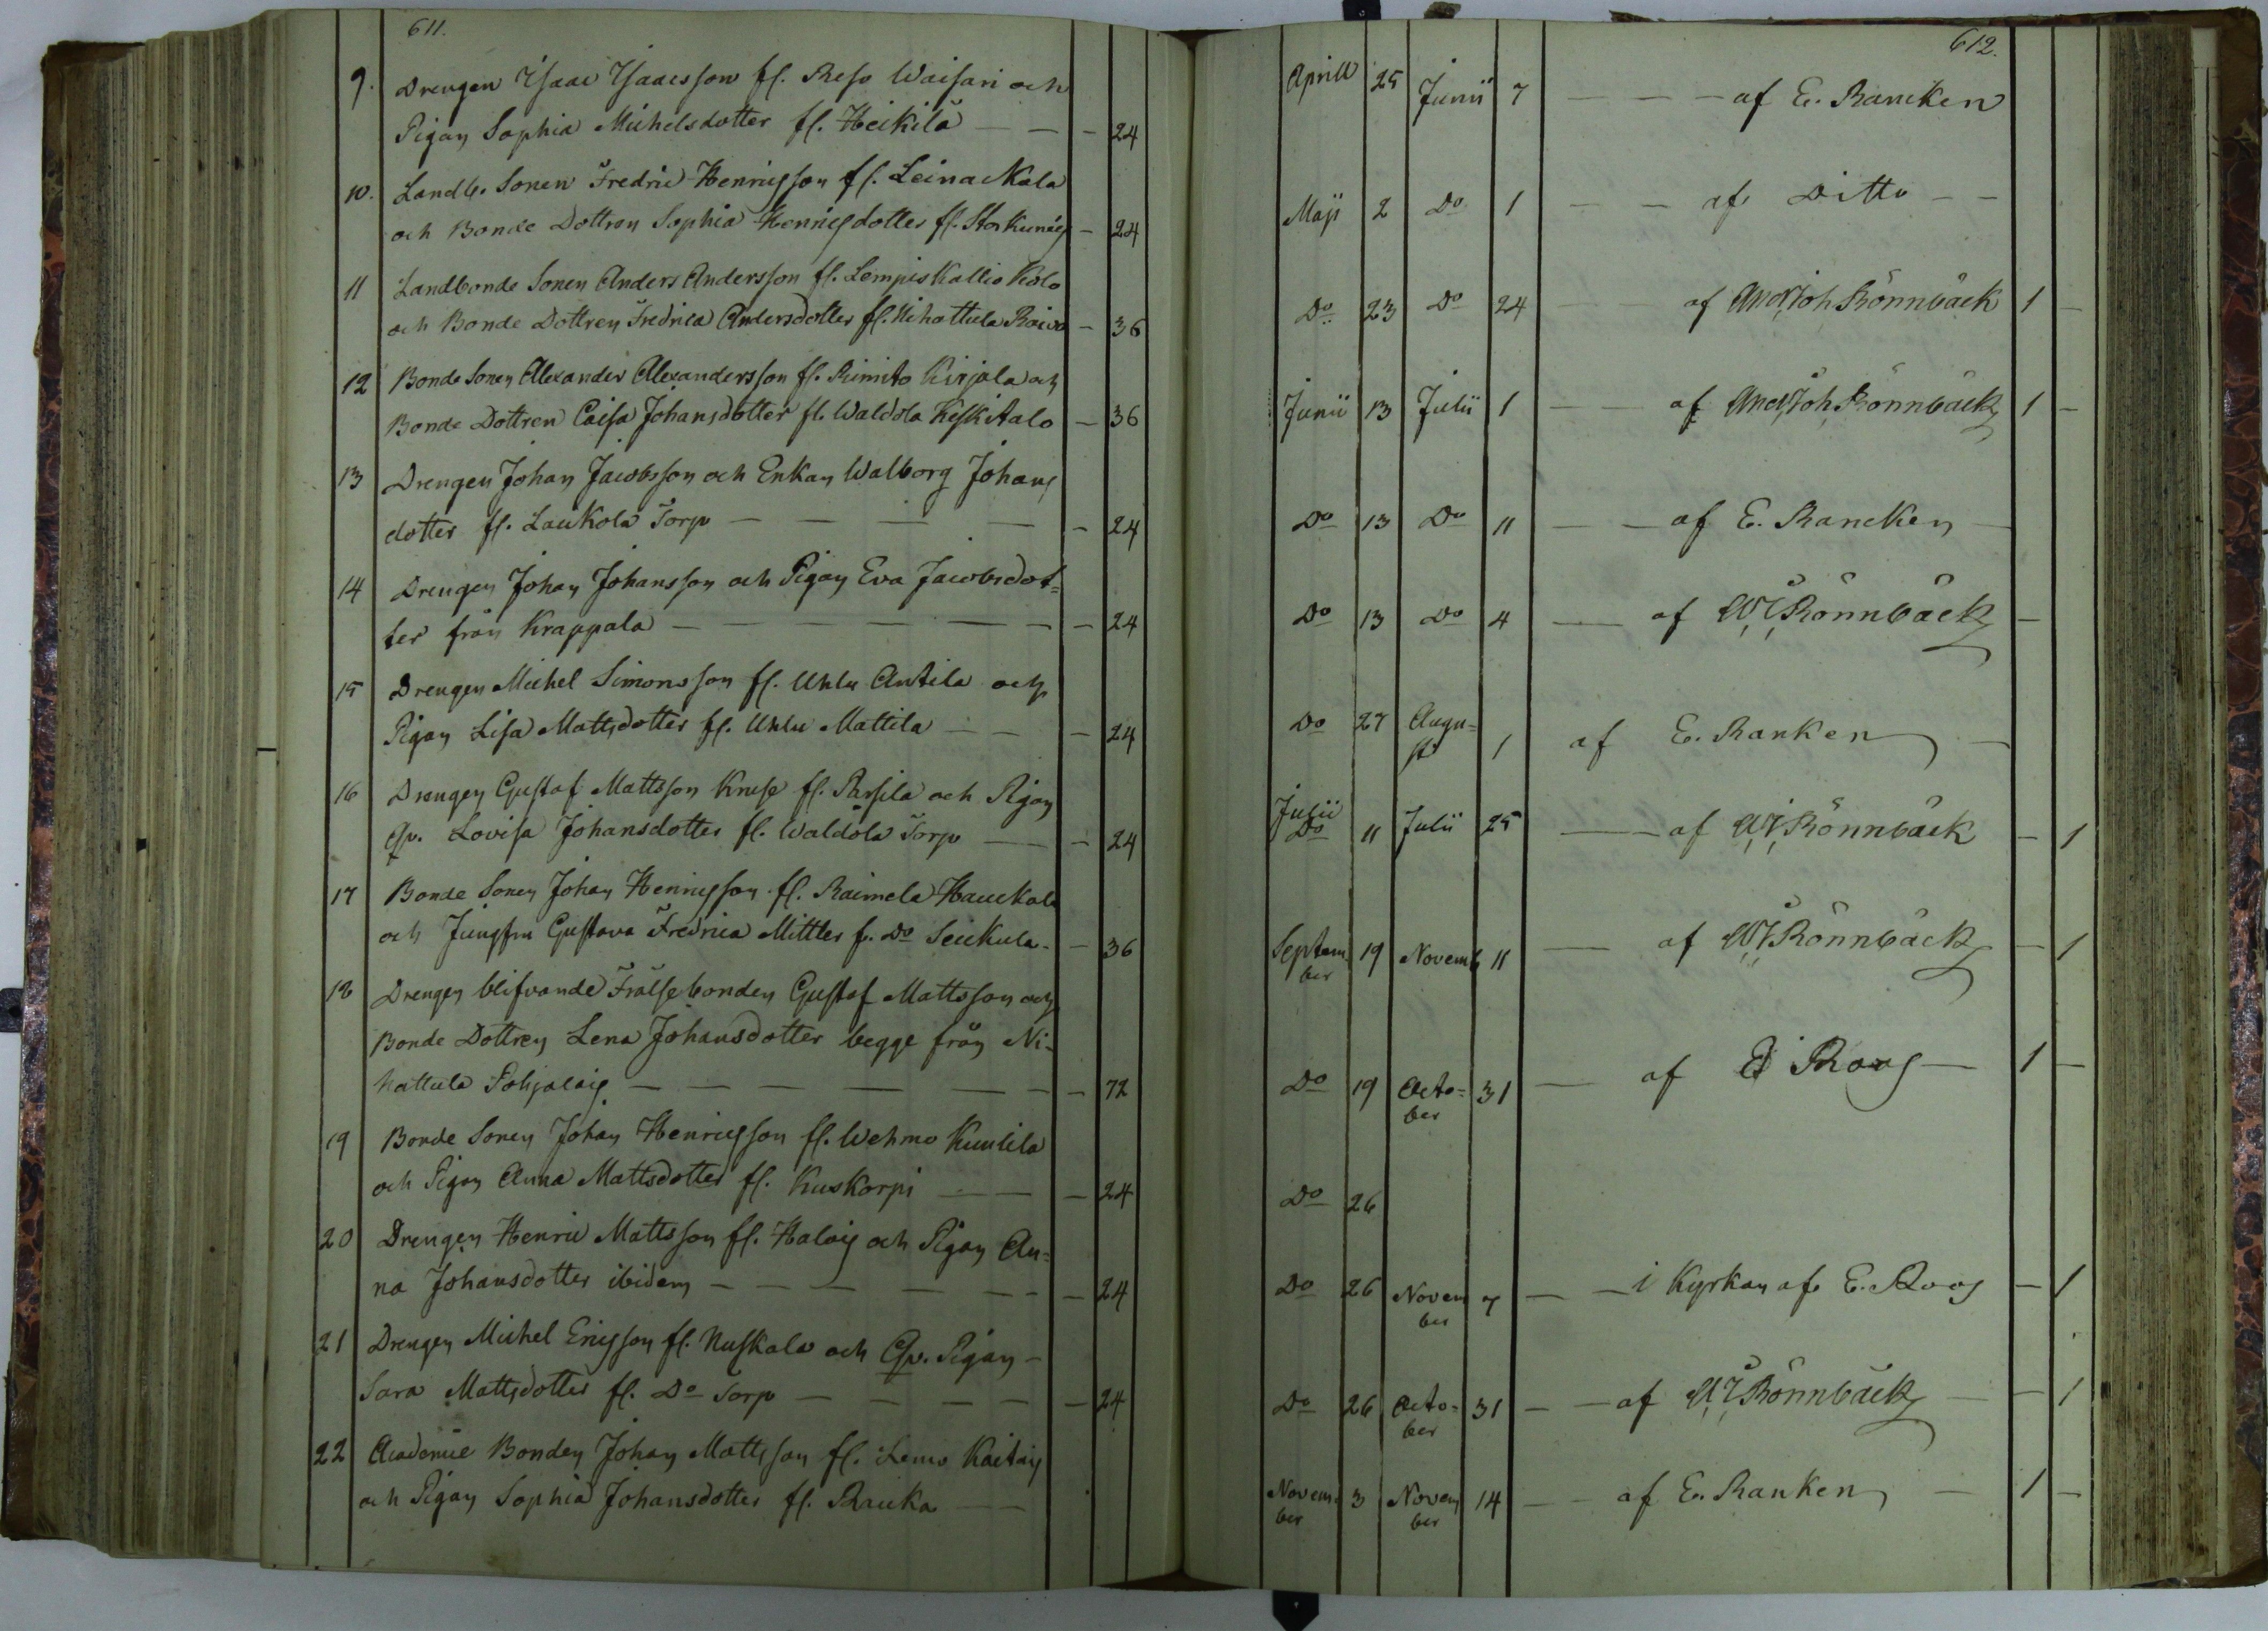 611.
9. Drengen Isaac Isaacsson fr. Reso Waisari och
Pigan Sophia Michelsdotter fr. Heikilä — — — 24
10. Landb. Sonen Fredric Henricsson fr. Leinackala
och Bonde Dottren Sophia Henricsdotter fr. Storkunois — 24
11 Landbonde Sonen Anders Andersson fr. Lempis Kallio Kolo
och Bonde Dottren Fredrica Andersdotter fr. Nihattula Roivo — 36
12 Bonde Sonen Alexander Alexandersson fr. Rimito Kirjala och
Bonde Dottren Caisa Johansdotter fr. Waldola Keskitalo — 36
13 Drengen Johan Jacobsson och Enkan Walborg Johans
dotter fr. Laukola Torp — — — — — 24
14 Drengen Johan Johansson och Pigan Eva Jacobsdot=
ter från Krappala — — — — — — — 24
15 Drengen Michel Simonsson fr. Uhlu Antila och
Pigan Lisa Mattsdotter fr. Uhlu Mattila — — — 24
16 Drengen Gustaf Mattsson Kruse fr. Parsila och Pigan
Qv. Lovisa Johansdotter fr. Waldola Torp — — 24
17 Bonde Sonen Johan Henricsson fr. Raimela Hauckala
och Jungfru Gustava Fredrica Mittler fr. Do Seikula - — 36
18 Drengen blifvande Frälsebonden Gustaf Mattsson och
Bonde Dottren Lena Johansdotter begge från Ni-
hattula Pohjalais — — — — — — — 72
19 Bonde Sonen Johan Henricsson fr. Wehmo Kuulila
och Pigan Anna Mattsdotter fr. Kuskorpi — — — 24
20 Drengen Henric Mattsson fr. Halois och Pigan An=
na Johansdotter ibidem — — — — — — — 24
21 Drengen Michel Ericsson fr. Nuskala och Qv. Pigan -
Sara Mattsdotter fr. Do Torp — — — — — 24
22 Academie Bonden Johan Mattsson fr. Lemo Kaitais
och Pigan Sophia Johansdotter fr. Rauka — —
612.
Aprill 25 Junii 7 — — — af E. Rancken
Maji 2 Do 1 — — af Ditto — —
Do 23 Do 24 — — af And. Joh Rönnbäck 1 —
Junii 13 Julii 1 — — af And. Joh Rönnbäck 1 —
Do 13 Do 11 — — af E. Rancken —
Do 13 Do 4 — af Rönnbäck —
Do 27 Augu=
sti 1 af E. Ranken —
Julii
Do 11 Julii 25 — af Rönnbäck — 1
Septem
ber 19 Novemb 11 — af Rönnbäck — 1
Do 19 Octo=
ber 31 — af E Roos — 1 —
Do 26
Do 26 Novem
ber 7 — — i Kyrkan af E. Roos — 1
Do 26 Octo=
ber 31 — — af Rönnbäck — — 1
Novem
ber 3 Novem
ber 14 — — af E. Ranken — 1 —